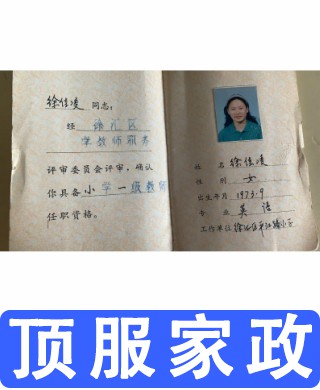 徐佳凌 同志:
经 徐汇区
学教师职务
评审委员会评审,确认
你具备小学一级教师
任职资格。
姓 名 徐佳凌
性 别 女
出生年月 1973.9
专 业 英语
工作单位
顶服家政